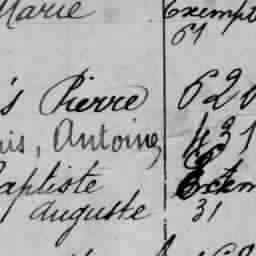 Marie Exempt
61
s Pierre 620
is, Antoine, 431
aptiste Exem
auguste 31